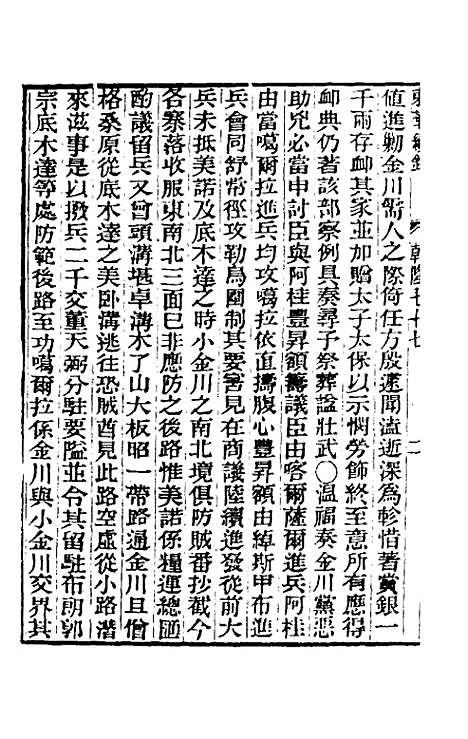 東華續錄 乾隆七十七 二
値進勦金川需人之際倚任方殷遽聞溘逝深爲軫惜著賞銀一
千兩存衈其家並加贈太子太保以示憫勞飾終至意所有應得
衈典仍著該部察例具奏尋予祭葬諡壯武○溫福奏金川黨惡
助兇必當申討臣與阿桂豐昇額籌議臣由喀爾薩爾進兵阿桂
由當噶爾拉進兵均攻噶拉依直擣腹心豐昇額由綽斯甲布進
兵會同舒常徑攻勒烏圍制其要害見在商議陸續進發從前大
兵未抵美諾及底木達之時小金川之南北境俱防賊番抄截今
各寨落收服東南北三面已非應防之後路惟美諾係糧運總匯
酌議留兵又曾頭溝堪卓溝木了山大板昭一帶路通金川且僧
格桑原從底木達之美臥溝逃往恐賊酋見此路空虛從小路潛
來滋事是以撥兵二千交董天弼分駐要隘並令其留駐布朗郭
宗底木達等處防範後路至功噶爾拉係金川與小金川交界其